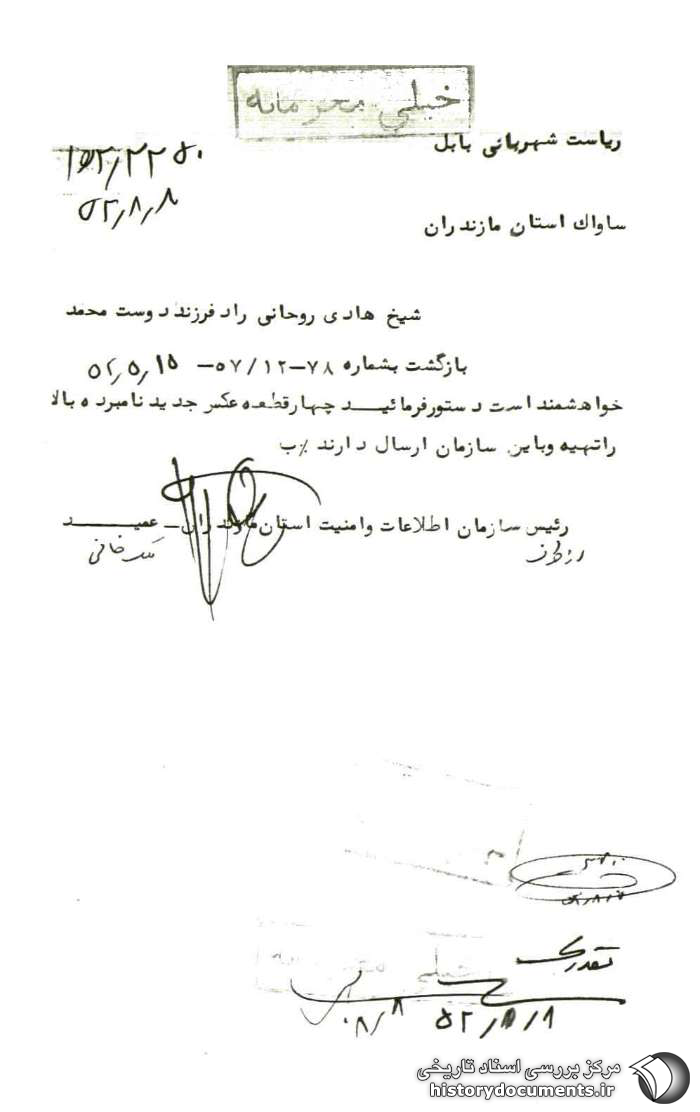 خیلی محرمانه
ریاست شهربانی بابل
۱۵۲/۲۲۵۰
۵۲/۸/۸
ساواک استان مازندران
شیخ هادی روحانی راد فرزند دوست محمد
بازگشت بشماره ۷۸-۱۲/۵۷- ۵۲/۵/۱۵
خواهشمند است دستورفرمائید چهارقطعه عکس جدید نامبرده بالا
راتهیه وباین سازمان ارسال دارند ٪ب
رئیس سازمان اطلاعات وامنیت استان مازندران - عمید
خیلی محرمانه
۵۲/۸/۸
۸/۸
مرکز بررسی اسناد تاریخی
historydocuments.ir